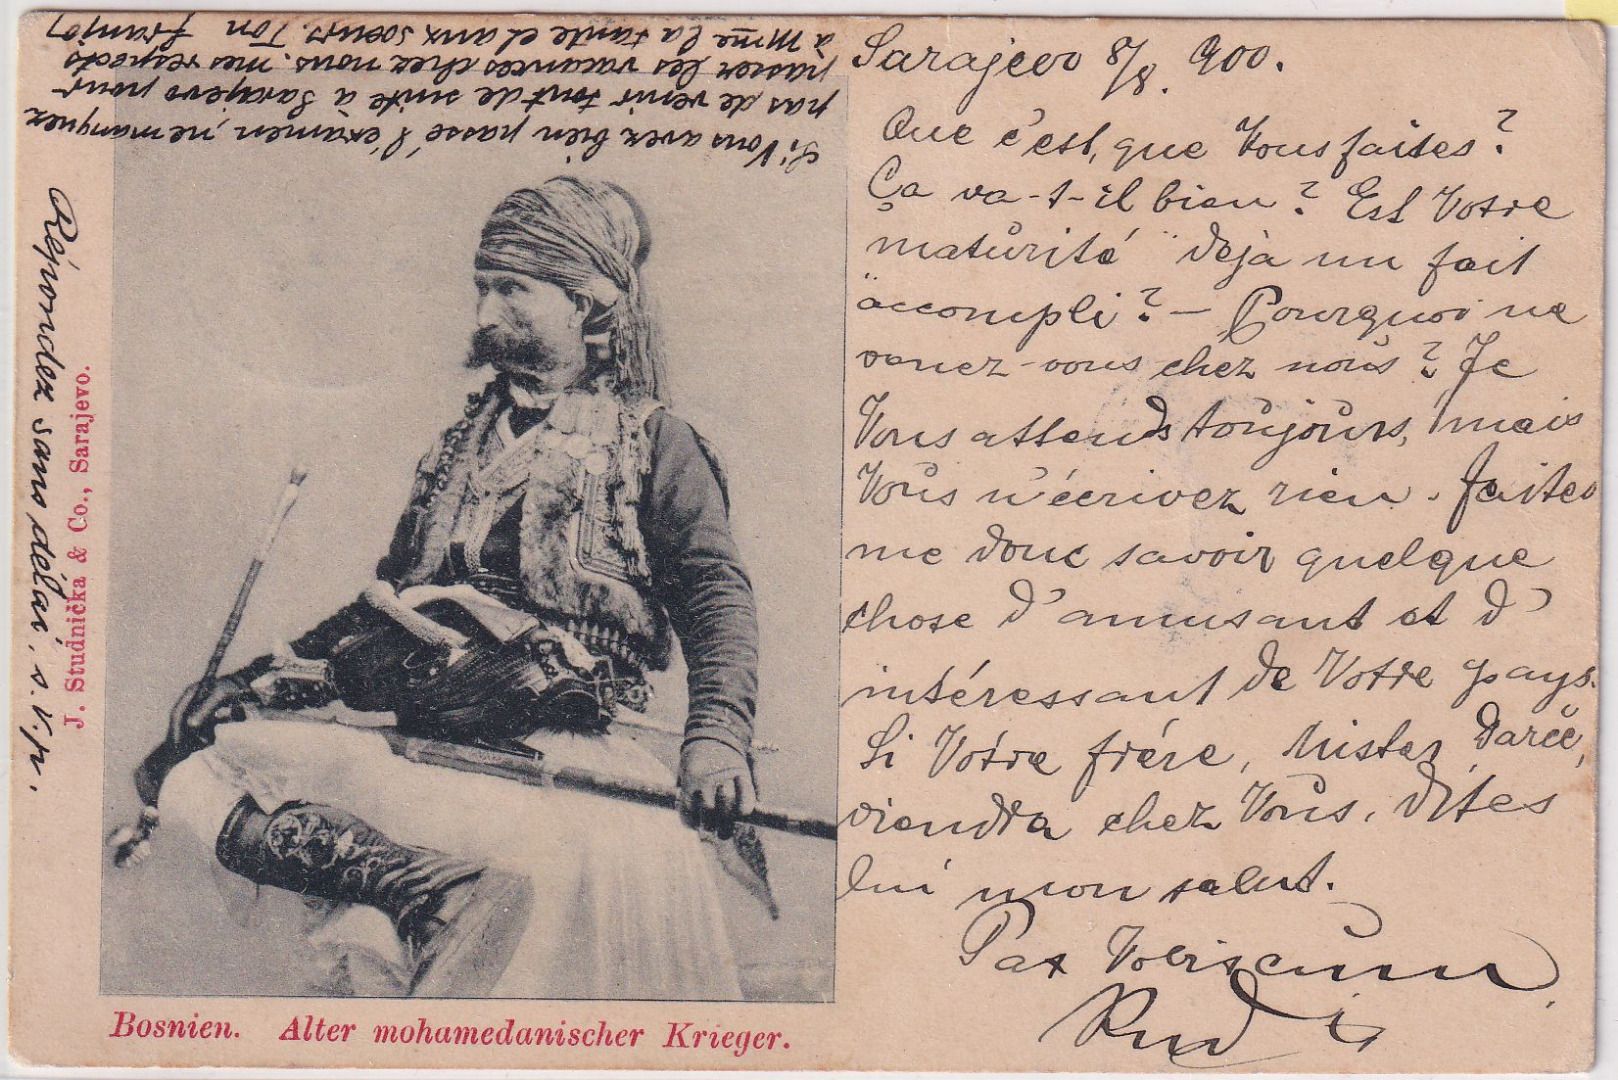 Sarajevo 8/8. 900.
Que c'est, que Vous faites?
Ça va-t-il bien? Est Votre
maturité déjà un fait
accompli? — Pourquoi ne
venez-vous chez nous? Je
Vous attends toujours, mais
Vous n'écrivez rien. Faites
me donc savoir quelque
chose d'amusant et d'
intéressant de Votre pays.
Si Vótre frére, Mister Darče,
viendra chez Vous, dites
lui mon salut.
Pax Vobiscum
Rudi
Si Vous avez bien passé l'exámen, ne manquez
pas de venir tout de suite a Sarajevo pour
passer les vacances chez nous. mes respects
à Mme la tante et aux soeurs. Ton Franjo
Répondez sans délai, s. V. p.
J. Studnička & Co., Sarajevo.
Bosnien. Alter mohamedanischer Krieger.